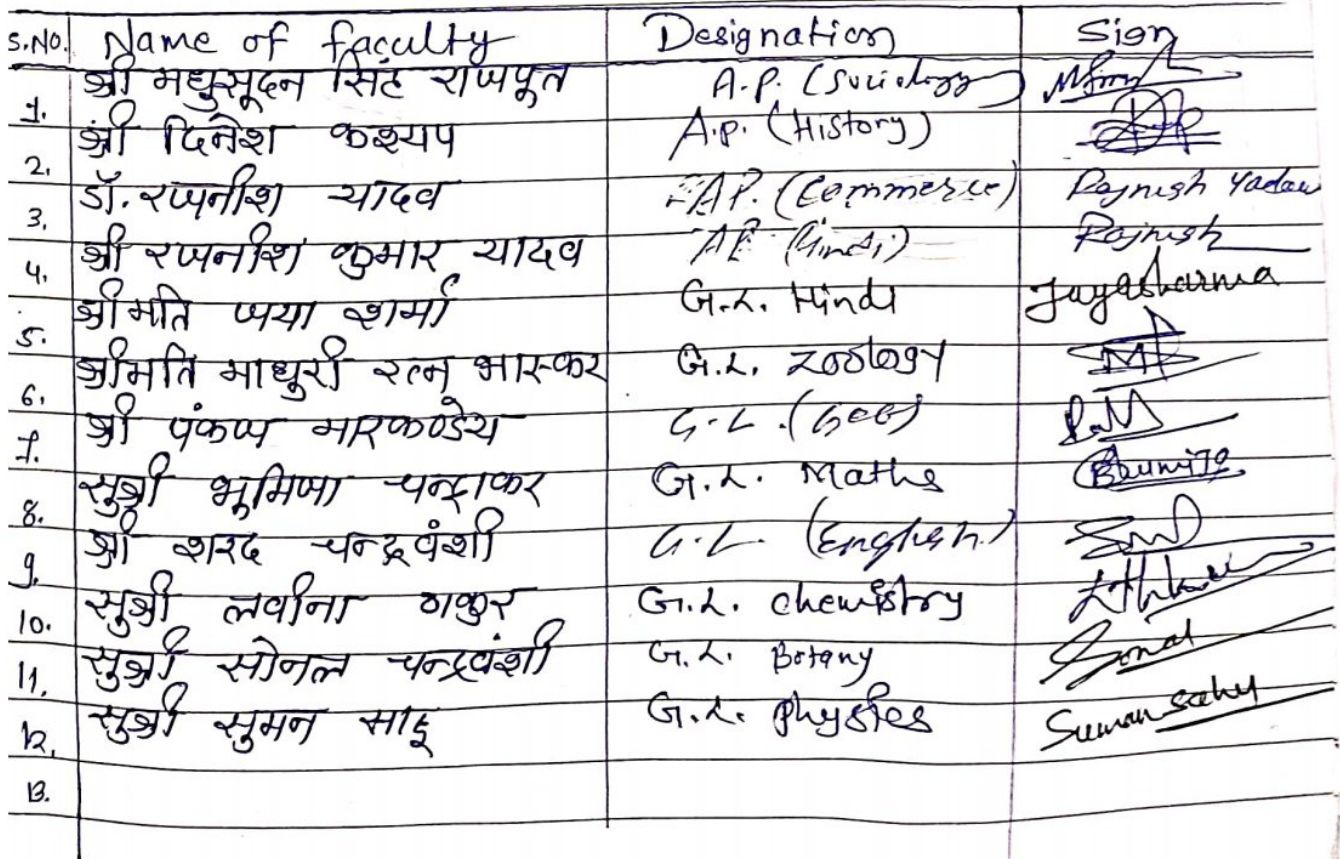 S.NO. Name of faculty Designation Sign
1. श्री मधुसूदन सिंह राजपूत A.P. (Sociology)
2. श्री दिनेश कश्यप A.P. (History)
3. डॉ. रजनीश यादव A.P. (Commerce) Rajnish Yadav
4. श्री रजनीश कुमार यादव AP (Hindi) Rajnish
5. श्रीमति जया शर्मा G.L. Hindi Jayasharma
6. श्रीमति माधुरी रत्न भास्कर G.L. Zoology
7. श्री पंकज मारकण्डेय G.L. (Geo)
8. सुश्री भूमिजा चन्द्राकर G.L. Maths
9. श्री शरद चन्द्रवंशी G.L. (English)
10. सुश्री लवीना ठाकुर G.L. chemistry
11. सुश्री सोनल चन्द्रवंशी G.L. Botany Sonal
12. सुश्री सुमन साहू G.L. physics Suman sahu
13.